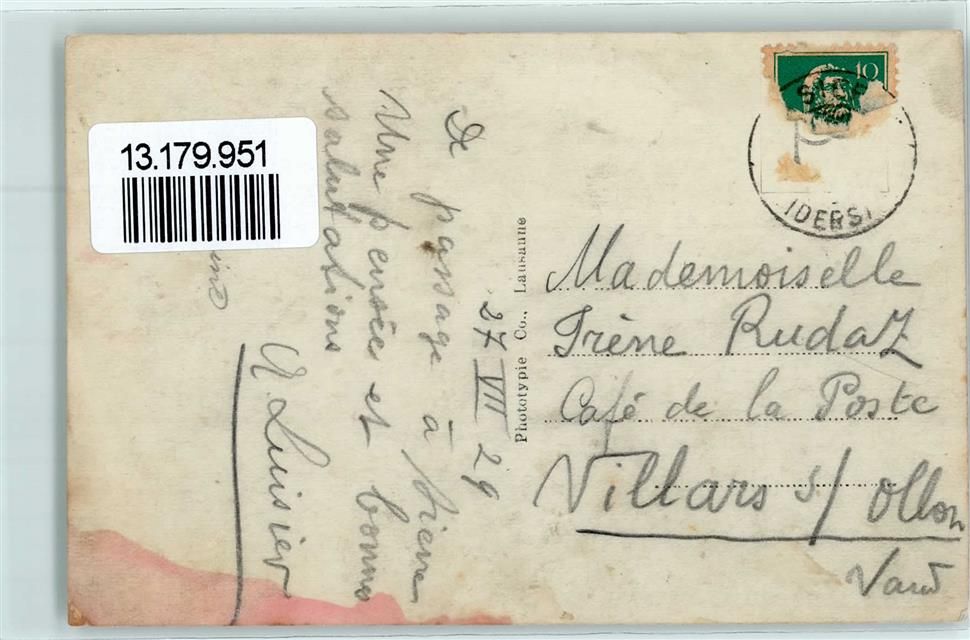 13.179.951
27 VII 29
De passage à Bienne
Une pensées et bonnes
salutations
Luisier
Phototypie Co., Lausanne
10
IDERSI
Mademoiselle
Irène Rudaz
Café de la Poste
Villars s/ Ollon
Vaud